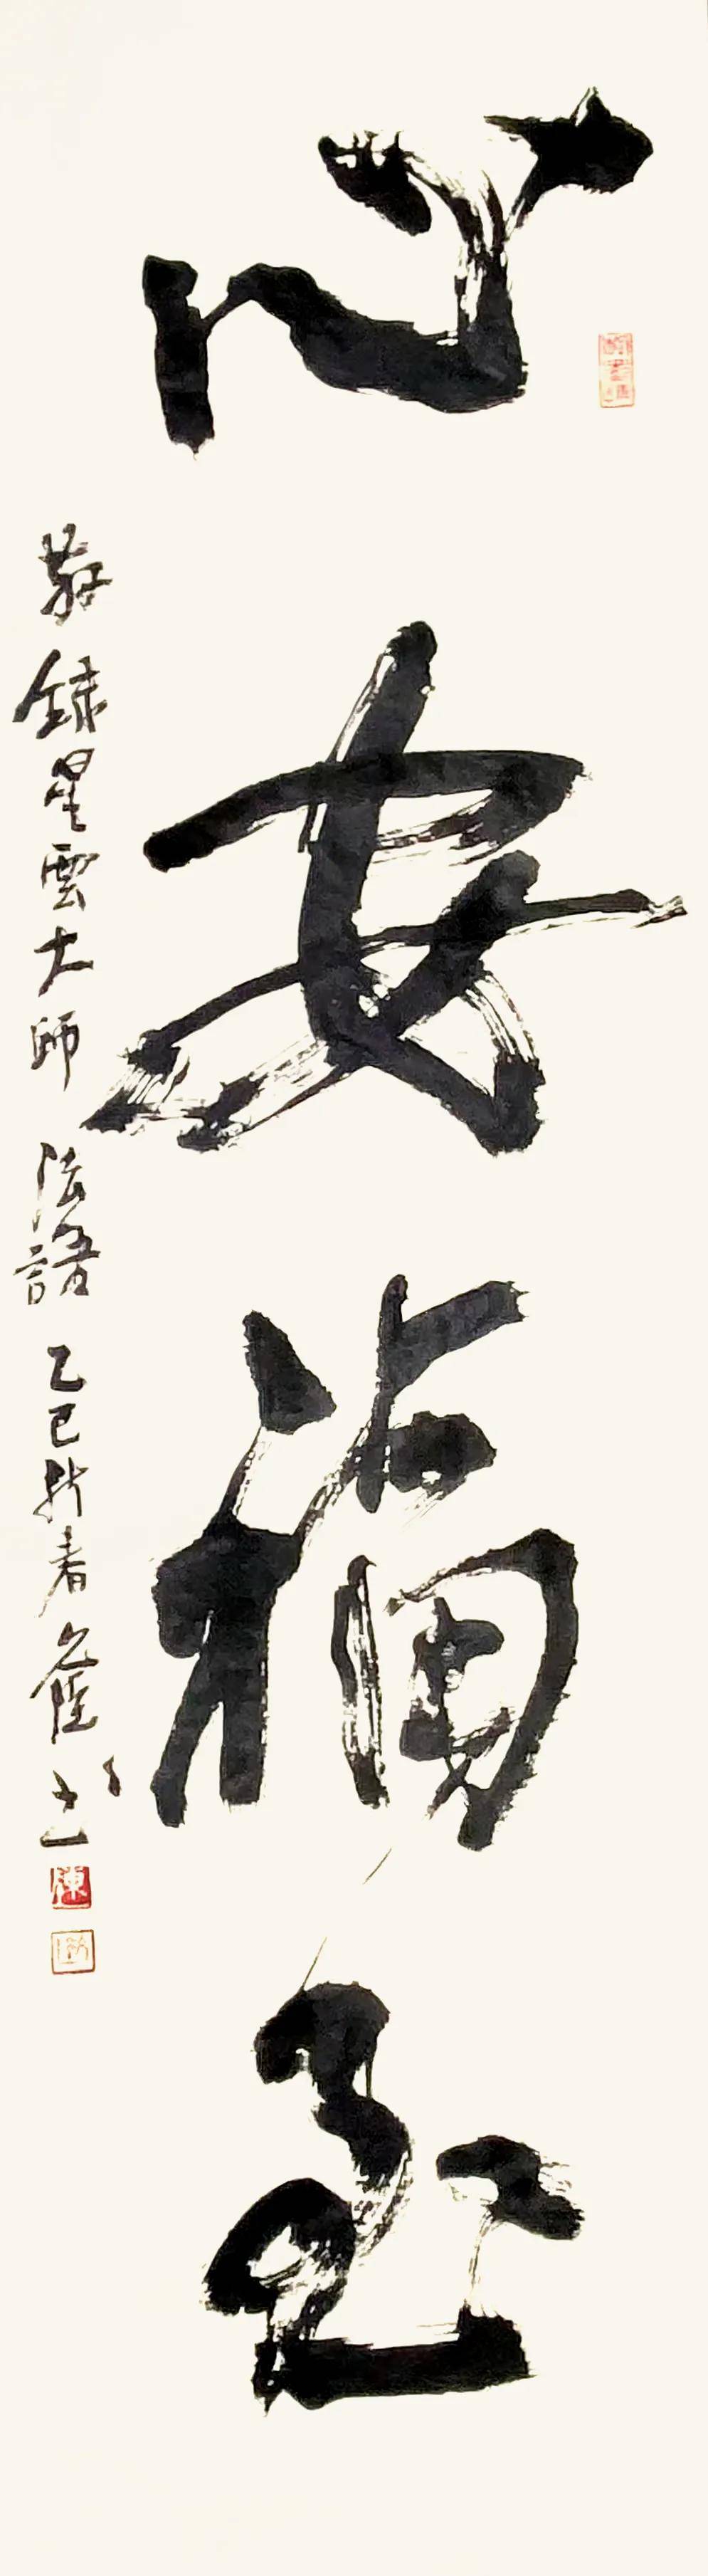 心安福至
敬録星雲大師 法語 乙巳新春 書
陳